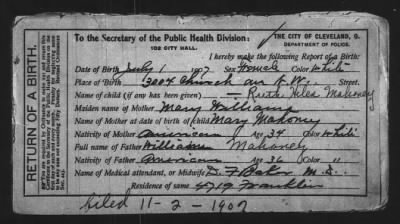 RETURN OF A BIRTH.
To the Secretary of the Public Health Division:
102 CITY HALL.
THE CITY OF CLEVELAND, O.
DEPARTMENT OF POLICE.
I hereby make the following Report of Birth:
Date of Birth July 1 1907 Sex Female Color White
Place of Birth 3004 Church av N.W. Street.
Name of child (if any has been given) — Ruth Helen Mahoney
Maiden name of Mother Mary Williams
Name of Mother at date of birth of child Mary Mahoney
Nativity of Mother American Age 34 Color White
Full name of Father William Mahoney
Nativity of Father American Age 36 Color "
Name of Medical attendant, or Midwife D. F. Baker M.D.
Residence of same 4719 Franklin
filed 11-2-1907